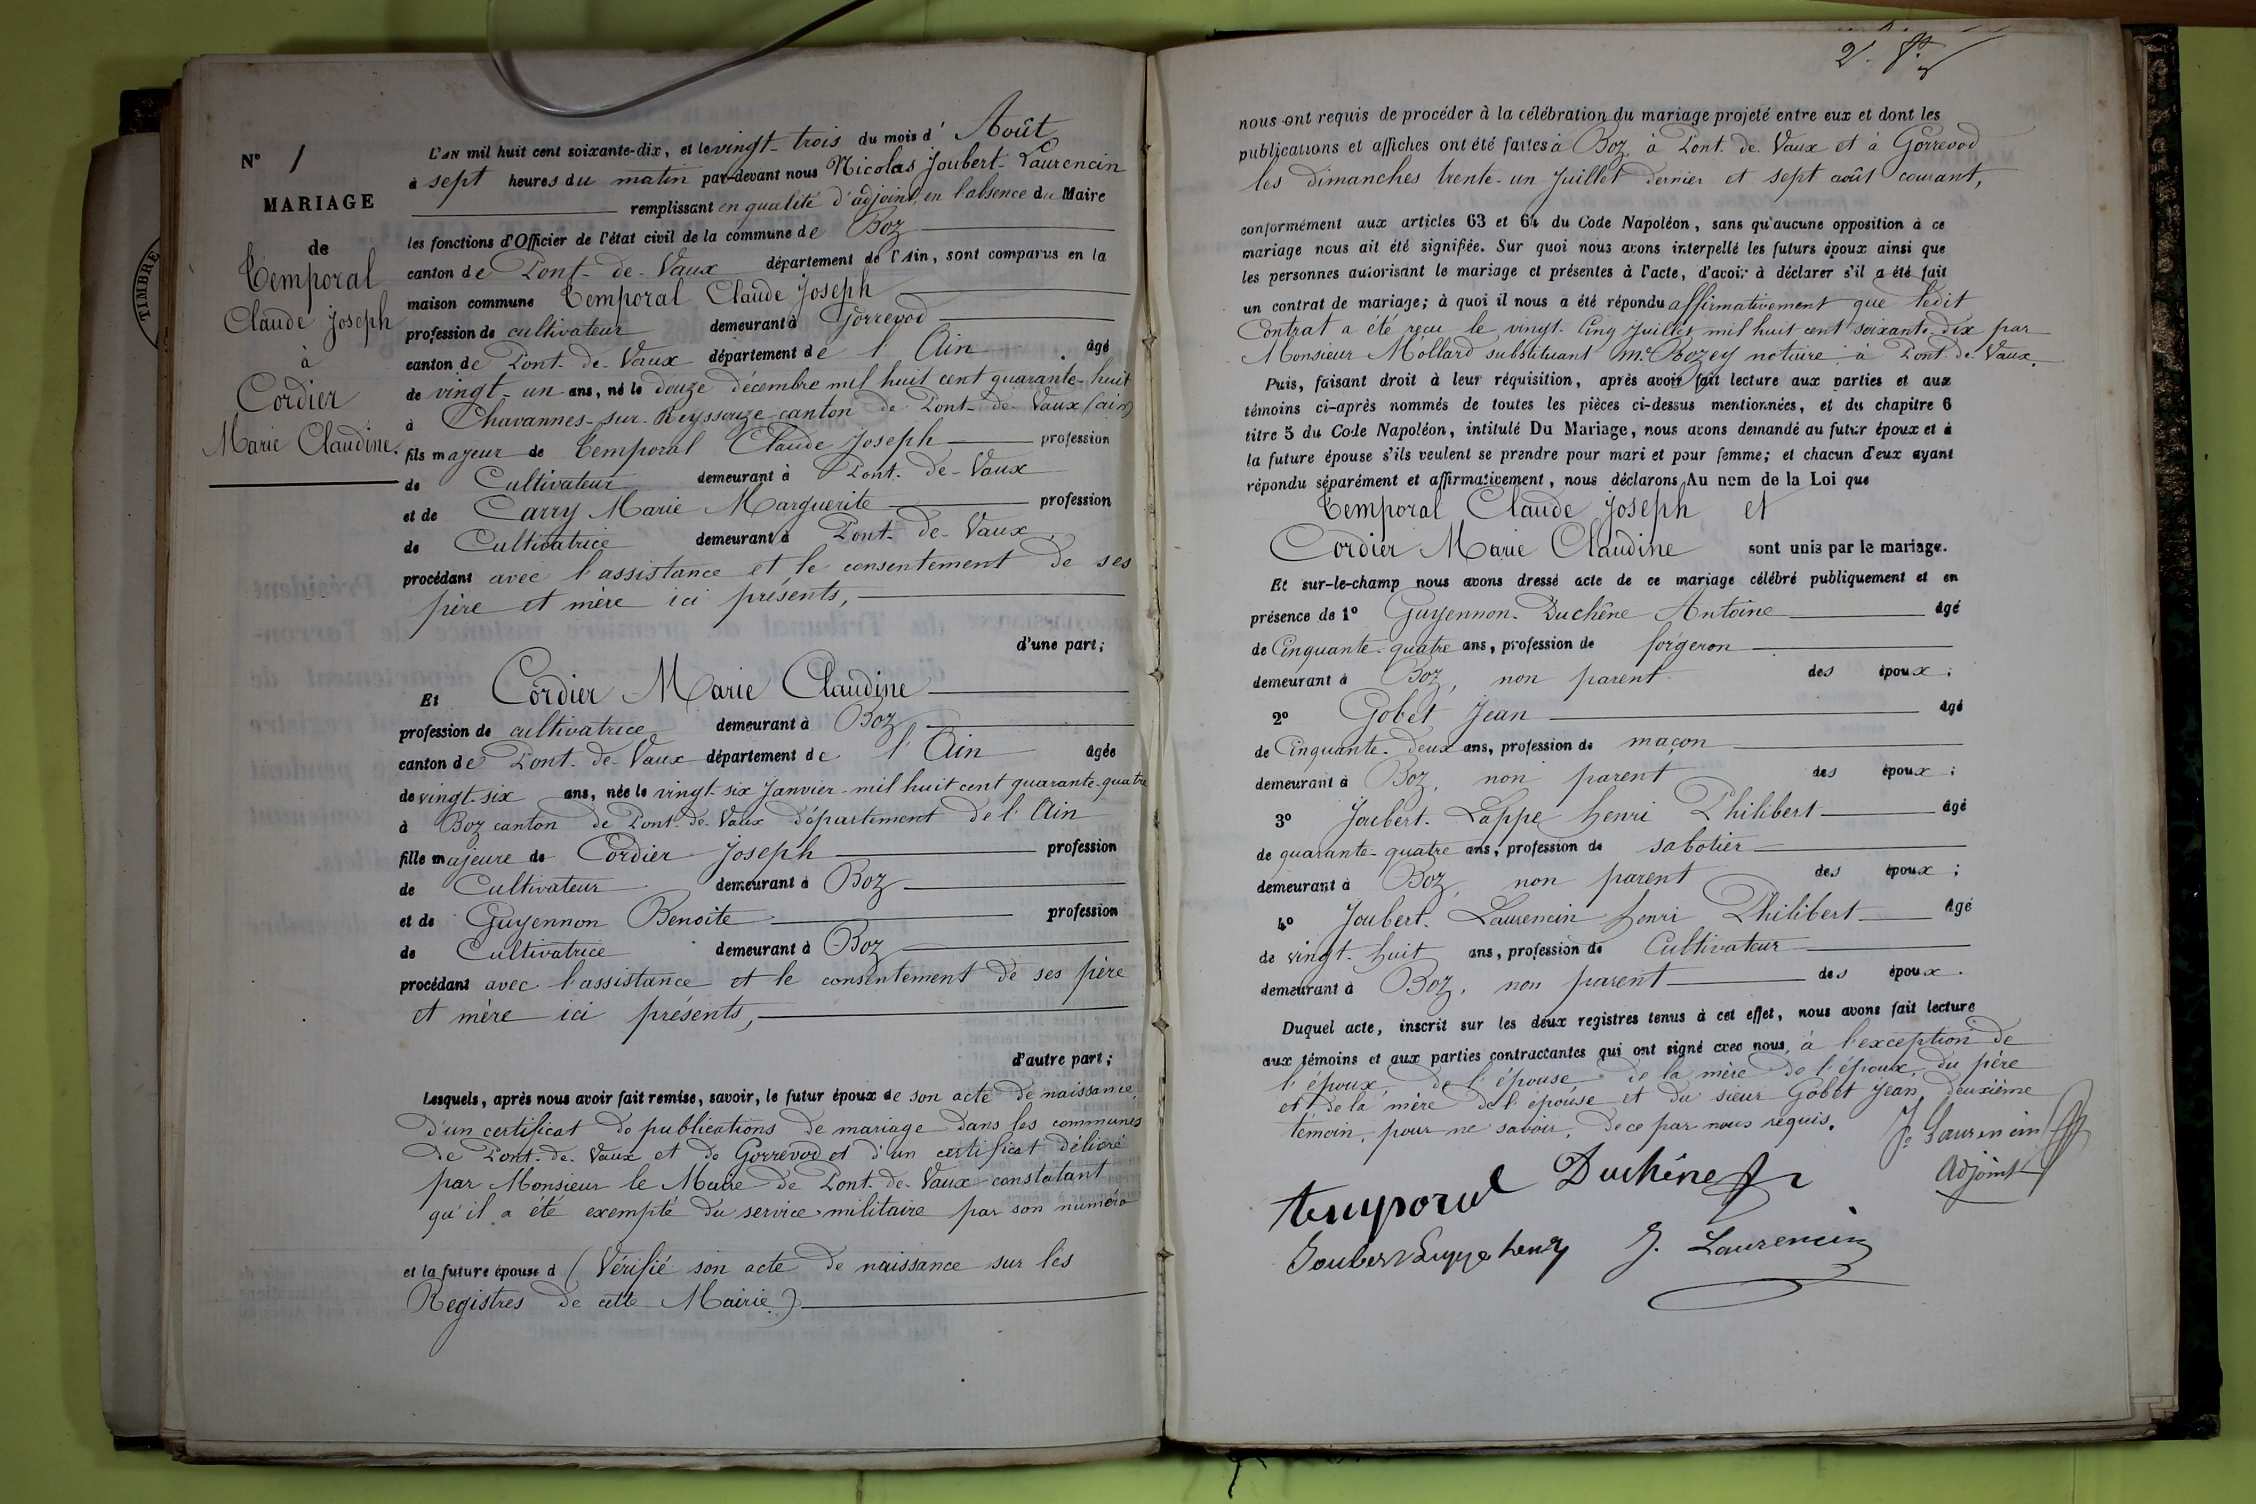 N° 1
MARIAGE
de
Temporal
Claude Joseph
à
Cordier
Marie Claudine.
TIMBRE
L'AN mil huit cent soixante-dix, et le vingt-trois du mois d' Août
à sept heures du matin par-devant nous Nicolas Joubert-Laurencin
remplissant en qualité d'adjoint, en l'absence du Maire
les fonctions d'Officier de l'état civil de la commune de Boz
canton de Pont-de-Vaux département de l'Ain, sont comparus en la
maison commune Temporal Claude Joseph
profession de cultivateur demeurant à Gorrevod
canton de Pont-de-Vaux département de l'Ain âgé
de vingt-un ans, né le douze décembre mil huit cent quarante-huit
à Chavannes-sur-Reyssouze canton de Pont-de-Vaux (ain)
fils majeur de Temporal Claude Joseph profession
de Cultivateur demeurant à Pont-de-Vaux
et de Carry Marie Marguerite profession
de Cultivatrice demeurant à Pont-de-Vaux
procédant avec l'assistance et le consentement de ses
père et mère ici présents,
d'une part;
Et Cordier Marie Claudine
profession de cultivatrice demeurant à Boz
canton de Pont-de-Vaux département de l'Ain âgée
de vingt-six ans, née le vingt-six Janvier mil huit cent quarante-quatre
à Boz canton de Pont-de-Vaux département de l'Ain
fille majeure de Cordier Joseph profession
de Cultivateur demeurant à Boz
et de Guyennon Benoite profession
de Cultivatrice demeurant à Boz
procédant avec l'assistance et le consentement de ses père
et mère ici présents,
d'autre part;
Lesquels, après nous avoir fait remise, savoir, le futur époux de son acte de naissance,
d'un certificat de publications de mariage dans les communes
de Pont-de-Vaux et de Gorrevod et d'un certificat délivré
par Monsieur le Maire de Pont-de-Vaux constatant
qu'il a été exempté du service militaire par son numéro
et la future épouse d (Vérifié son acte de naissance sur les
Registres de cette Mairie)
nous ont requis de procéder à la célébration du mariage projeté entre eux et dont les
publications et affiches ont été faites à Boz, à Pont-de-Vaux et à Gorrevod
les dimanches trente-un Juillet dernier et sept août courant,
conformément aux articles 63 et 64 du Code Napoléon, sans qu'aucune opposition à ce
mariage nous ait été signifiée. Sur quoi nous avons interpellé les futurs époux ainsi que
les personnes autorisant le mariage et présentes à l'acte, d'avoir à déclarer s'il a été fait
un contrat de mariage; à quoi il nous a été répondu affirmativement que ledit
Contrat a été reçu le vingt-Cinq Juillet mil huit cent soixante-dix par
Monsieur Mollard substituant me Bozey notaire à Pont-de-Vaux.
Puis, faisant droit à leur réquisition, après avoir fait lecture aux parties et aux
témoins ci-après nommés de toutes les pièces ci-dessus mentionnées, et du chapitre 6
titre 5 du Code Napoléon, intitulé Du Mariage, nous avons demandé au futur époux et à
la future épouse s'ils veulent se prendre pour mari et pour femme; et chacun d'eux ayant
répondu séparément et affirmativement, nous déclarons Au nom de la Loi que
Temporal Claude Joseph et
Cordier Marie Claudine sont unis par le mariage.
Et sur-le-champ nous avons dressé acte de ce mariage célébré publiquement et en
présence de 1° Guyennon-Duchêne Antoine âgé
de Cinquante-quatre ans, profession de forgeron
demeurant à Boz, non parent des époux;
2° Gobet Jean âgé
de Cinquante-deux ans, profession de maçon
demeurant à Boz, non parent des époux;
3° Joubert-Lappe henri Philibert âgé
de quarante-quatre ans, profession de sabotier
demeurant à Boz, non parent des époux;
4° Joubert-Laurencin henri Philibert âgé
de vingt-huit ans, profession de Cultivateur
demeurant à Boz, non parent des époux.
Duquel acte, inscrit sur les deux registres tenus à cet effet, nous avons fait lecture
aux témoins et aux parties contractantes qui ont signé avec nous, à l'exception de
l'époux, de l'épouse, de la mère de l'époux, du père
et de la mère de l'épouse et du sieur Gobet Jean, deuxième
témoin, pour ne savoir, de ce par nous requis.
J. Laurencin
Adjoint
Temporal Duchêne
Joubert Lappe henry J. Laurencin